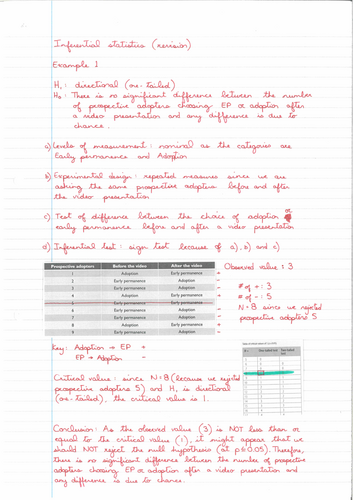 Inferential statistics (revision)
Example 1
H₁ : directional (one-tailed)
H₀ : There is no significant difference between the number
of prospective adopters choosing EP or adoption after
a video presentation and any difference is due to
chance.
a) Levels of measurement : nominal as the categories are
Early permanence and Adoption
b) Experimental design : repeated measures since we are
asking the same prospective adoptive before and after
the video presentation
c) Test of difference between the choice of adoption or
early permanence before and after a video presentation
d) Inferential test : sign test because of a), b) and c)
Prospective adopters Before the video After the video
Adoption Early permanence +
2 Early permanence Adoption -
3 Early permanence Adoption -
4 Adoption Early permanence +
5 Early permanence Early permanence
6 Early permanence Adoption -
7 Early permanence Adoption -
8 Adoption Early permanence +
9 Early permanence Adoption -
Observed value : 3
# of + : 3
# of - : 5
N=8 since we rejected
prospective adopters 5
Key: Adoption → EP +
EP → Adoption -
Critical value : since N=8 (because we rejected
prospective adopters 5) and H₁ is directional
(one-tailed), the critical value is 1.
Conclusion: As the observed value (3) is NOT less than or
equal to the critical value (1), it might appear that we
should NOT reject the null hypothesis (at p≤0.05). Therefore,
there is no significant difference between the number of prospective
adopters choosing EP or adoption after a video presentation and
any difference is due to chance.